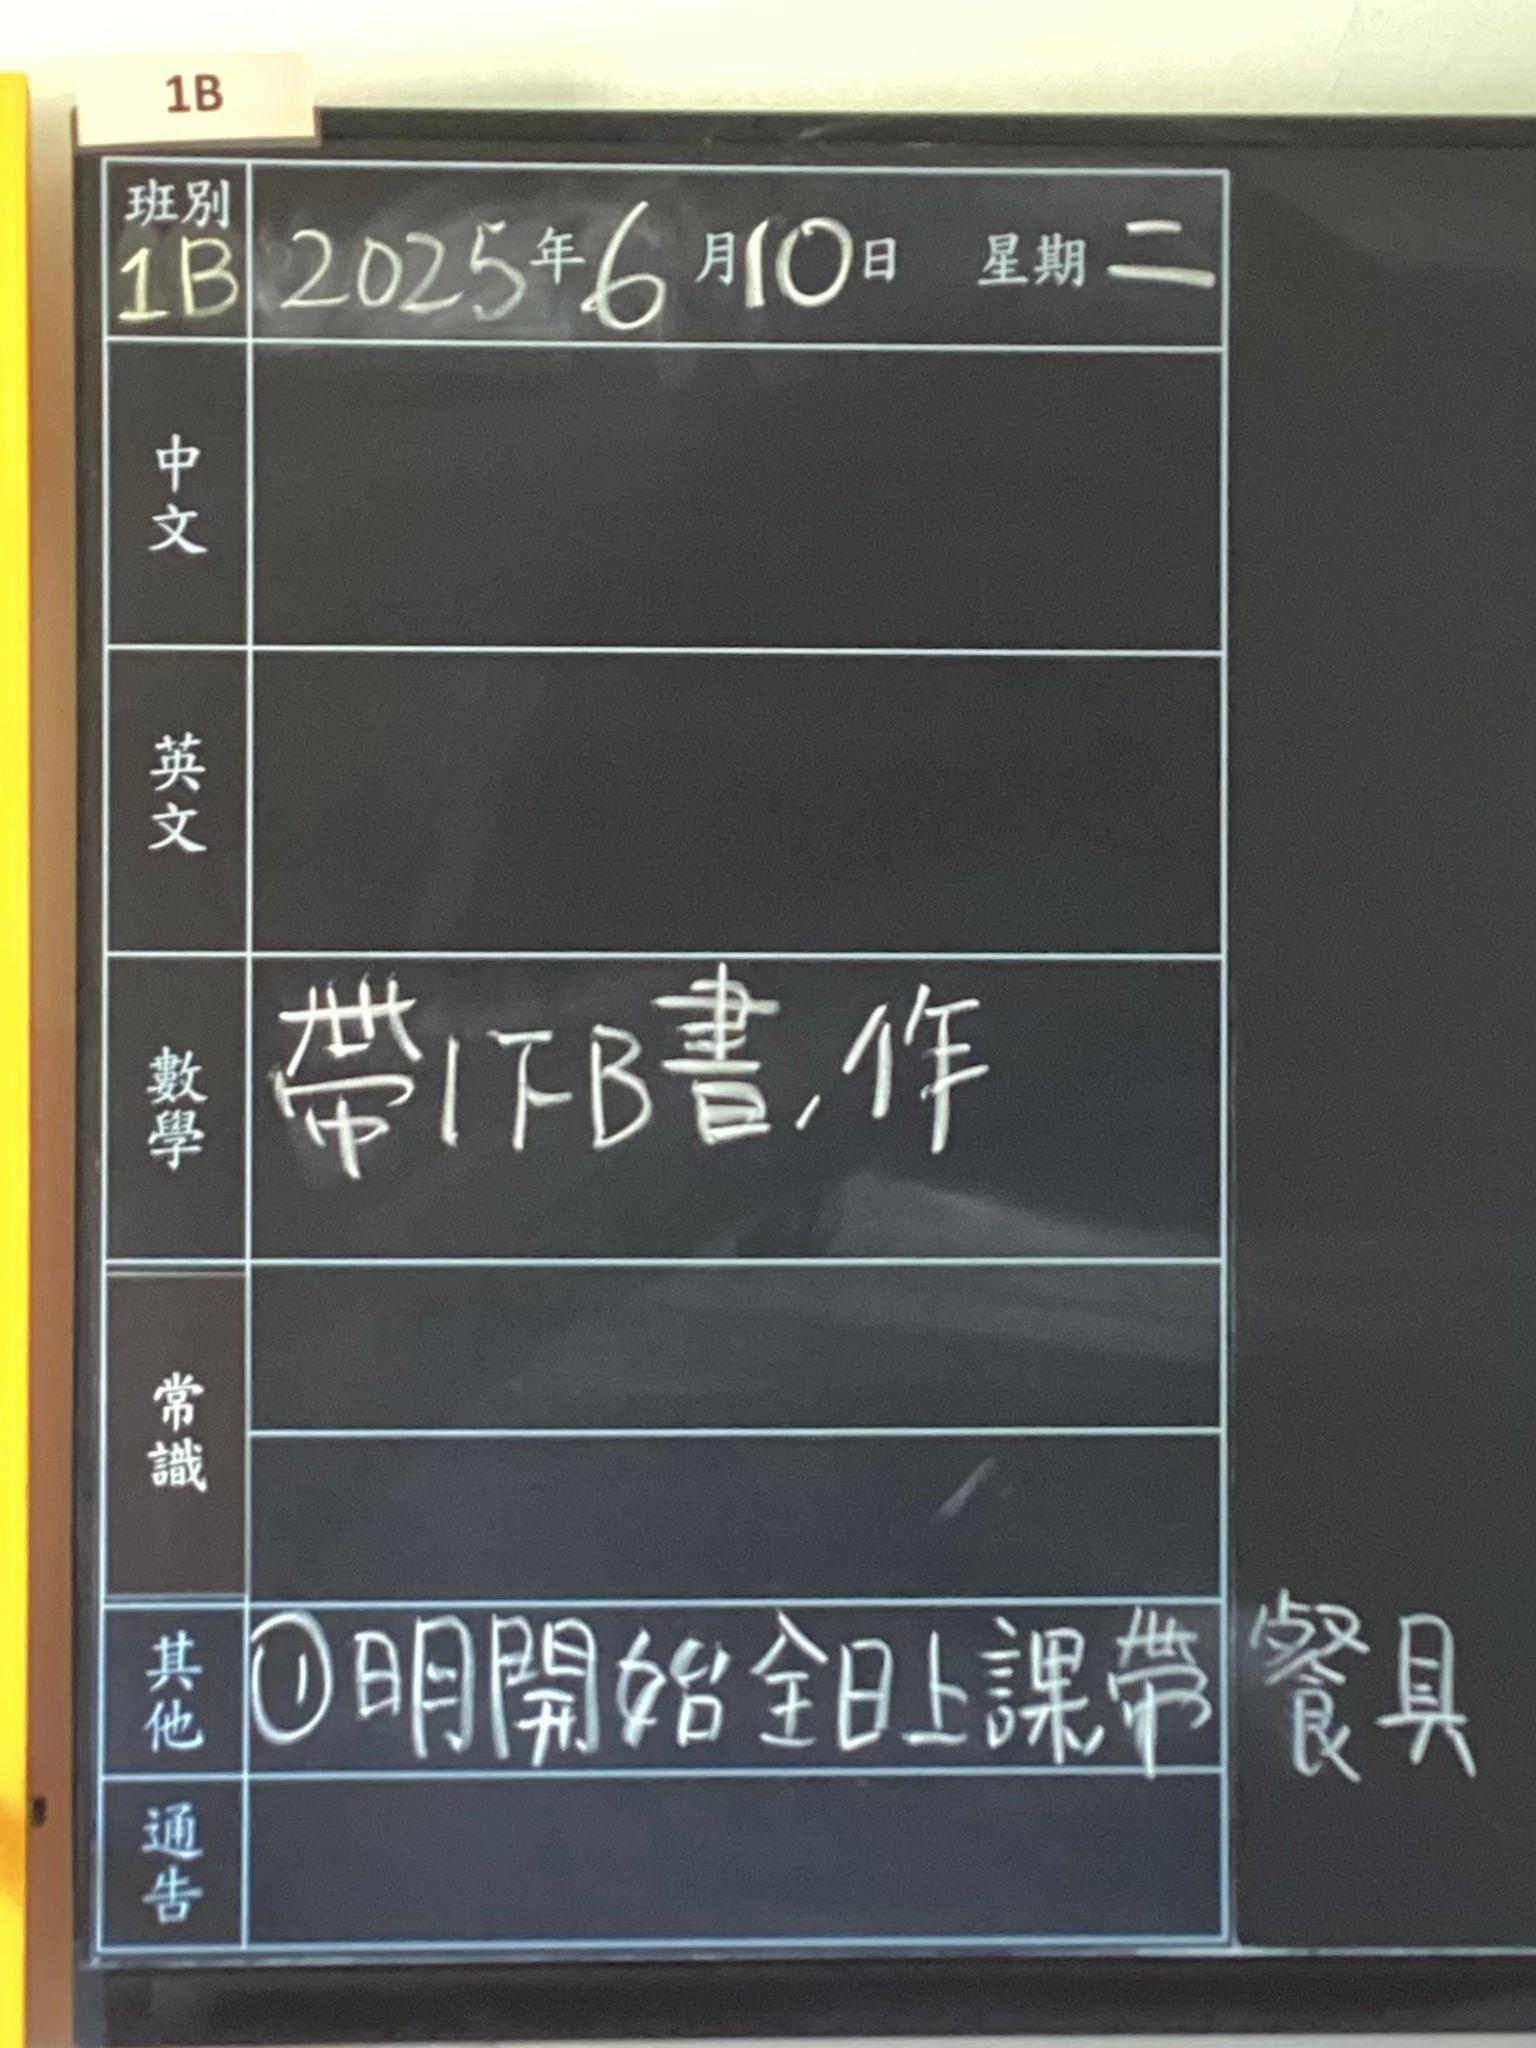 1B
班別
1B
2025年6月10日 星期二
中文
英文
數學
帶1下B書,作
常識
其他
①明開始全日上課,帶餐具
通告